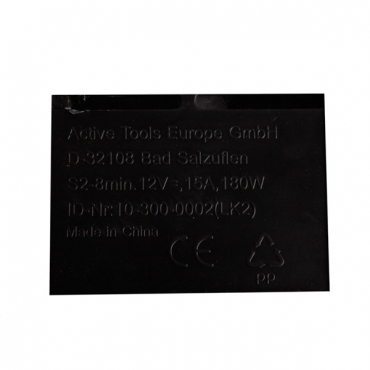 Active Tools Europe GmbH
D-32108 Bad Salzuflen
S2-8min. 12V⎓,15A,180W
ID-Nr:10-300-0002(LK2)
Made in China
CE
PP